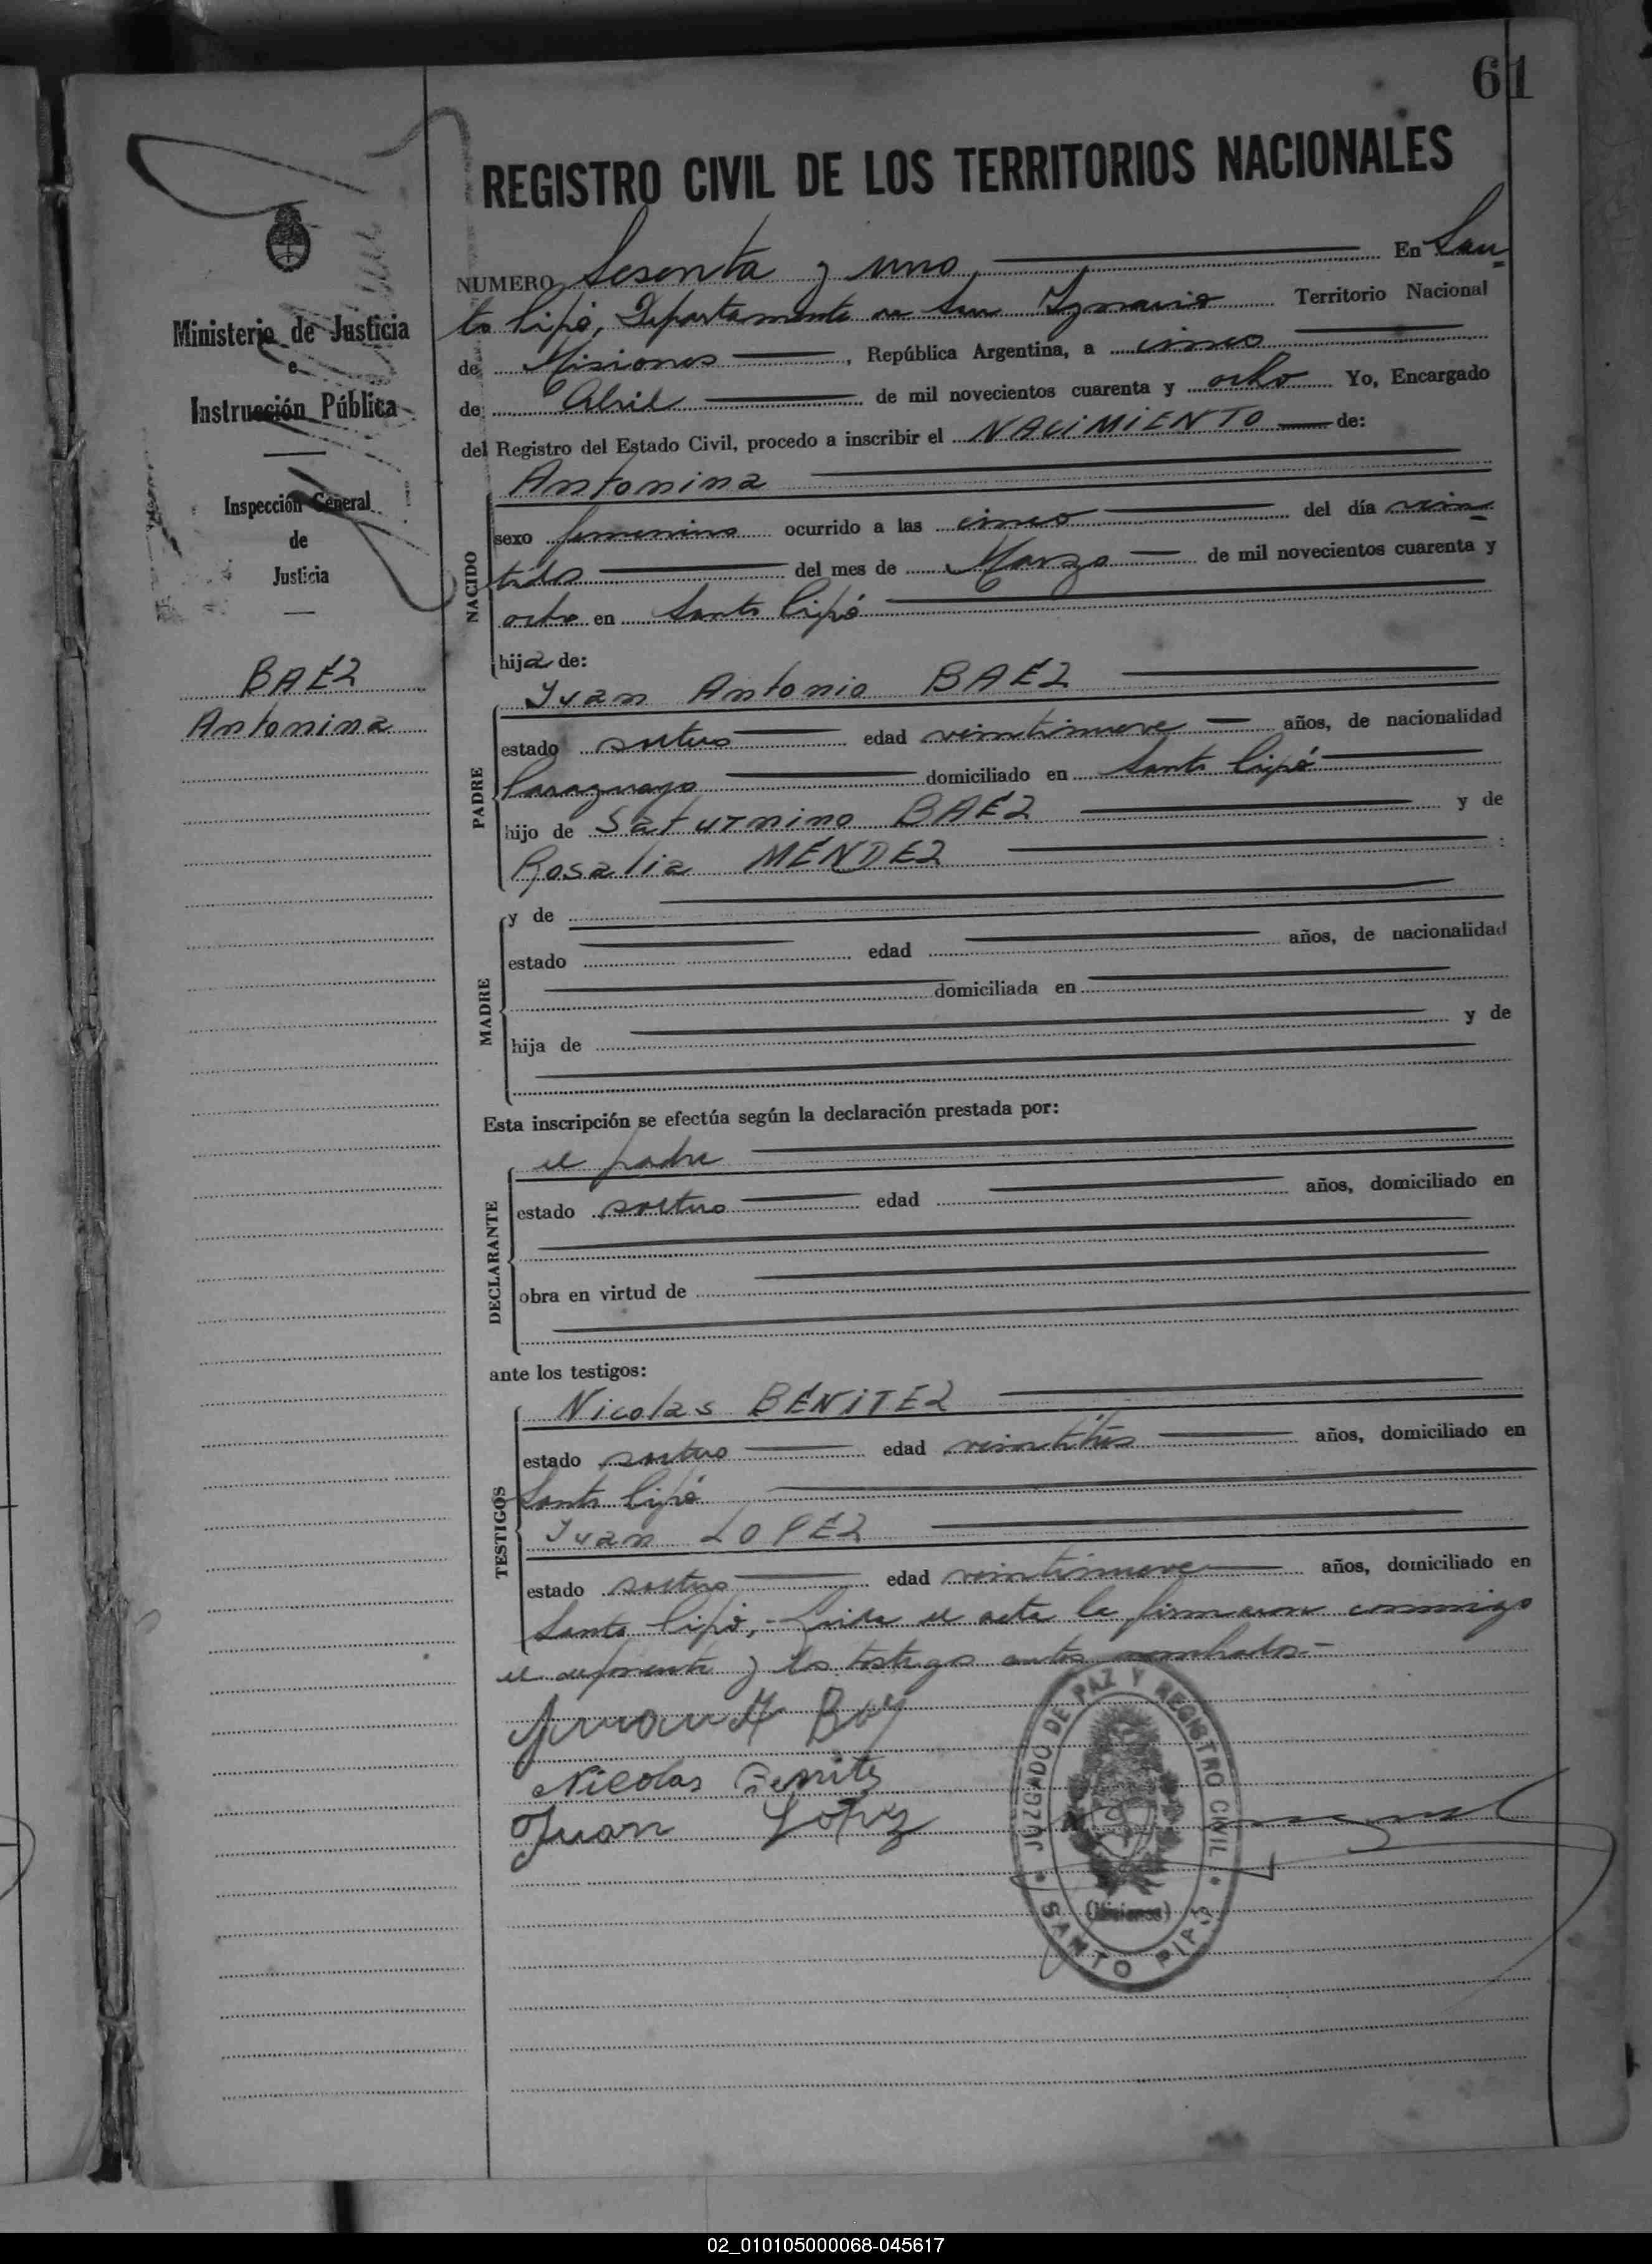 61
REGISTRO CIVIL DE LOS TERRITORIOS NACIONALES
Ministerio de Justicia
e
Instrucción Pública
Inspección General
de
Justicia
BAÉZ
Antonina
NUMERO Sesenta y uno, En San
to Pipó, Departamento de San Ygnacio Territorio Nacional
de Misiones, República Argentina, a cinco
de Abril de mil novecientos cuarenta y ocho Yo, Encargado
del Registro del Estado Civil, procedo a inscribir el NACiMiENTO de:
NACIDO
Antonina
sexo femenino ocurrido a las cinco del día vein=
tidos del mes de Marzo de mil novecientos cuarenta y
ocho en Santo Pipó
hija de:
PADRE
Juan Antonio BAÉZ
estado soltero edad veintinueve años, de nacionalidad
Paraguayo domiciliado en Santo Pipó
hijo de Saturnino BAÉZ y de
Rosalia MÉNDEZ
MADRE
y de
estado edad años, de nacionalidad
domiciliada en
hija de y de
Esta inscripción se efectúa según la declaración prestada por:
DECLARANTE
el padre
estado soltero edad años, domiciliado en
obra en virtud de
ante los testigos:
TESTIGOS
Nicolas BÉNiTEZ
estado soltero edad veintitrés años, domiciliado en
Santo Pipó
Juan LOPÉZ
estado soltero edad veintinueve años, domiciliado en
Santo Pipó,- Leida el acta la firmaron conmigo
el deponente y los testigos antes nombrados=
Nicolas Benitez
Juan Lopez
JUZGADO DE PAZ Y REGISTRO CIVIL
(Misiones)
SANTO PIPÓ
02_010105000068-045617